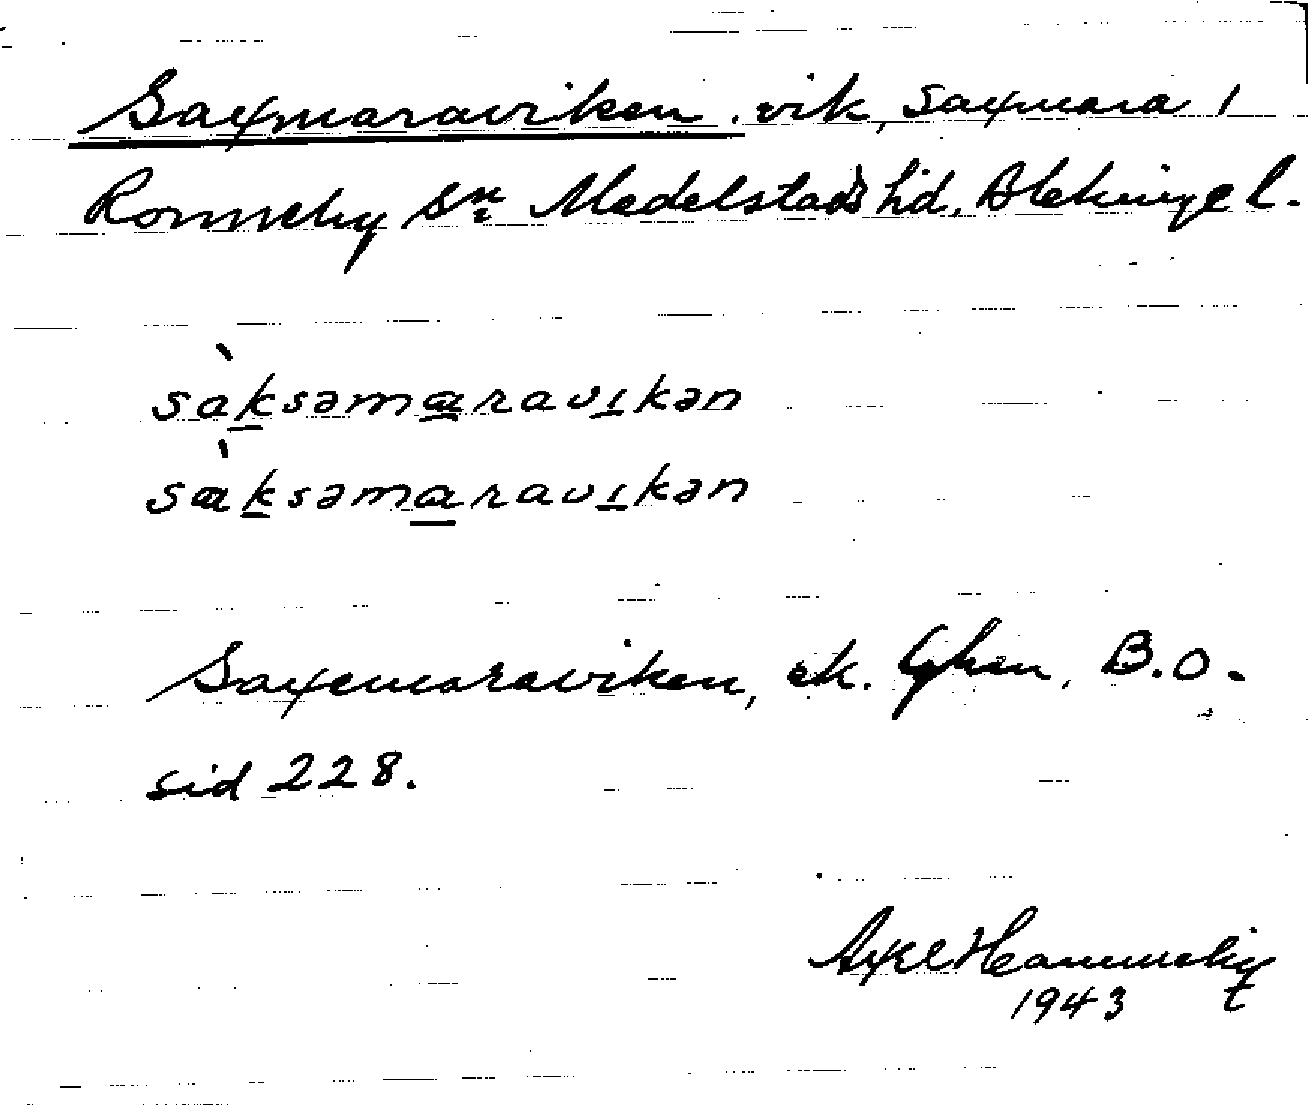 Saxmaraviken, vik, Saxmara 1
Ronneby sn Medelstads hd, Blekinge l.
sàksəmɑravɪkən
sɑ̀ksəmaravɪkən
Saxemaraviken, ek. Ghn, B.O.
sid 228.
Axel Hammeby
1943